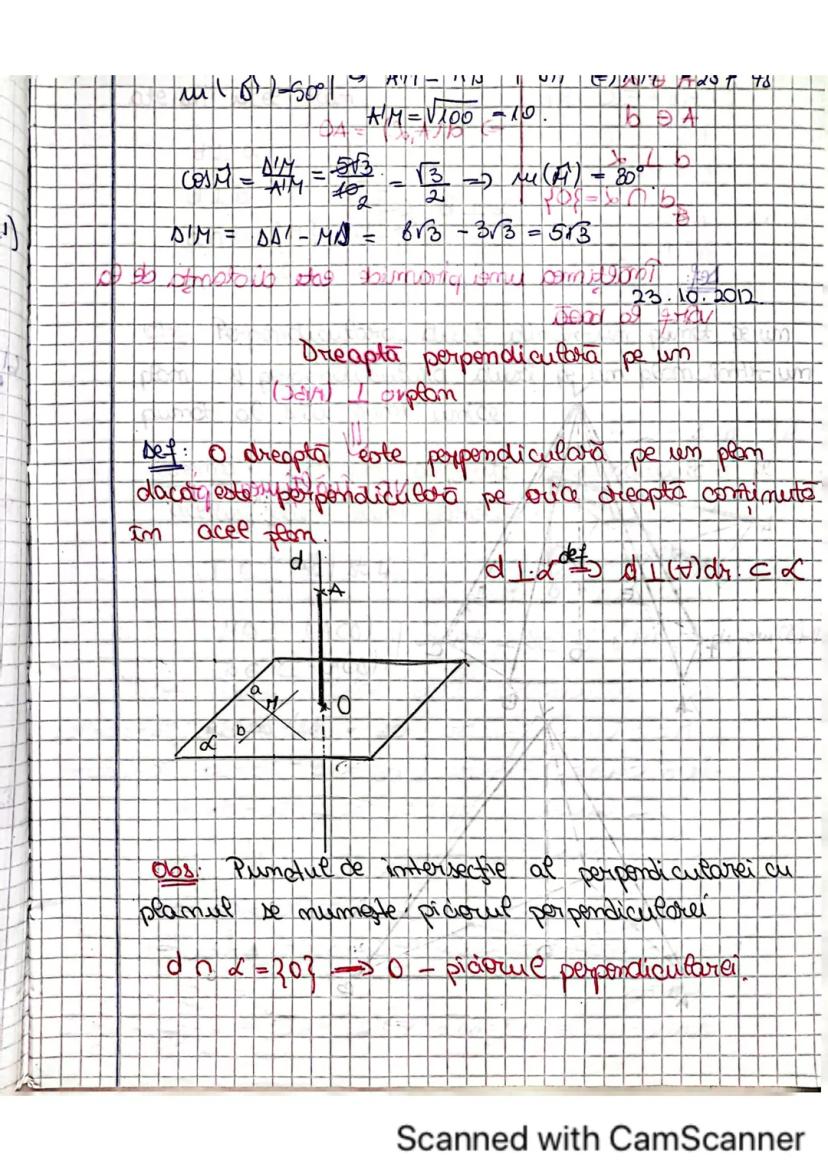 A'M = √100 = 10.
cos M̂ = D'M/A'M = 5√3/10 2 = √3/2 => m(M̂) = 30°
D'M = DD' - MD = 8√3 - 3√3 = 5√3
23.10.2012
Dreaptă perpendiculară pe un
plan
Def: O dreaptă este perpendiculară pe un plan
dacă este perpendiculară pe orice dreaptă conținută
în acel plan.
d ⊥ α def=> d ⊥ (∀) dr. ⊂ α
d
A
a
M
O
b
α
Obs: Punctul de intersecție al perpendicularei cu
planul se numește piciorul perpendicularei
d ∩ α = {O} → O - piciorul perpendicularei.
Scanned with CamScanner